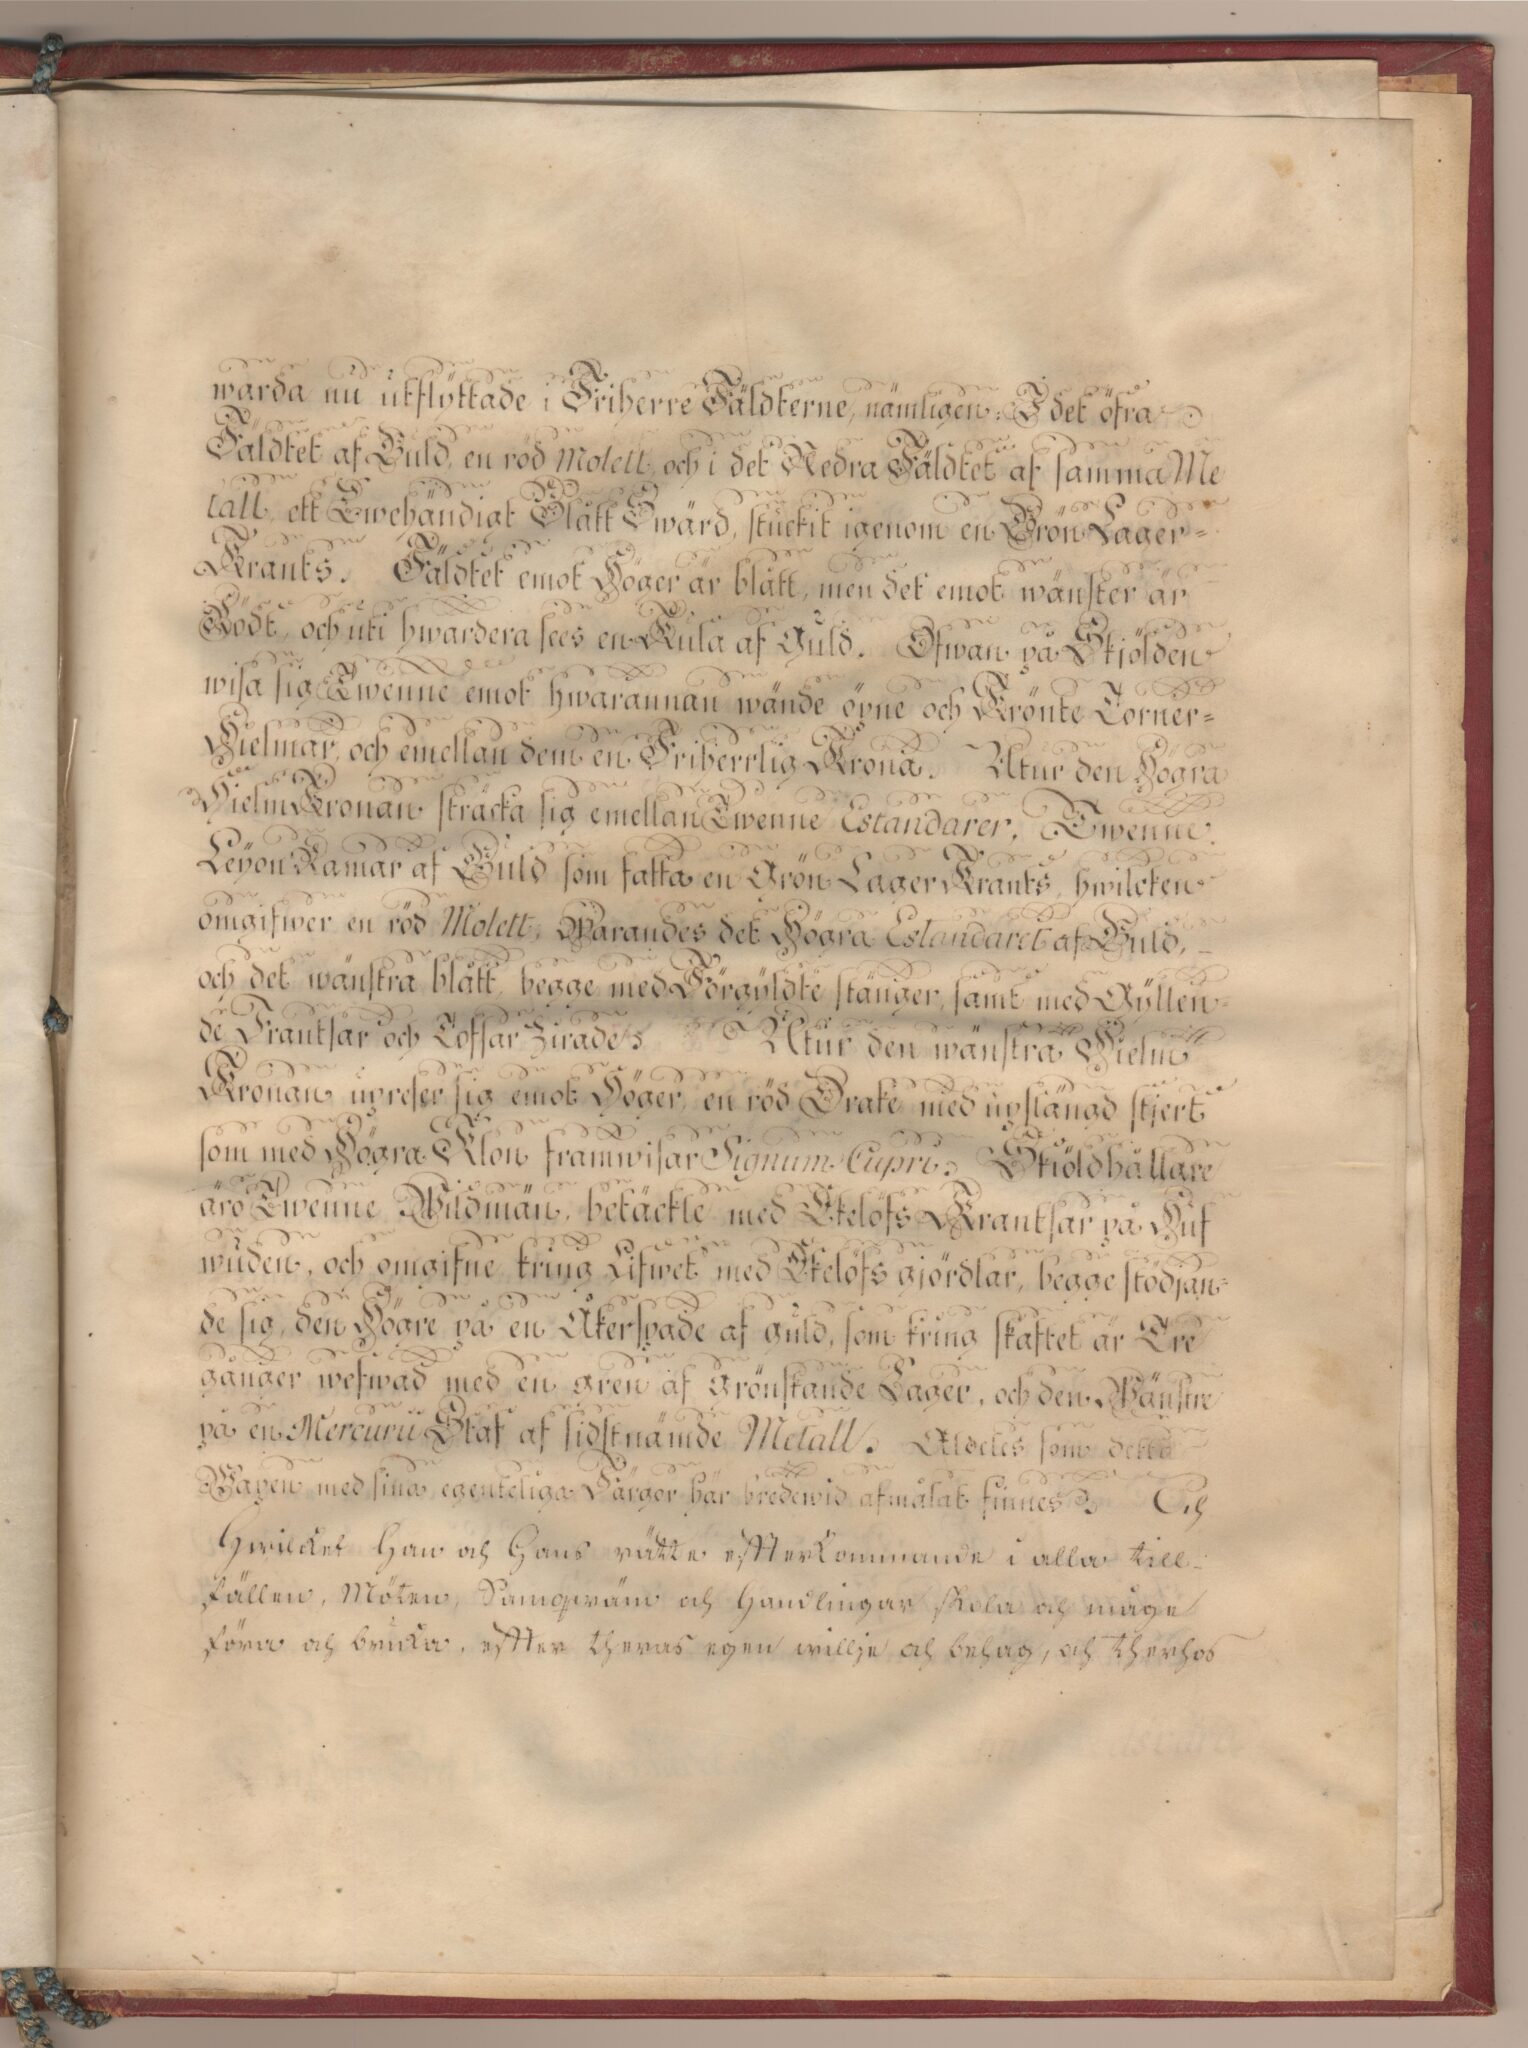 warda nu utflyttade i Friherre Fäldterne, nämligen: I det öfra
Fäldtet af Guld, en röd Molett, och i det Nedra Fäldtet af samma Me
tall, ett Twehändigt Blått Swärd, stuckit igenom en Grön Lager=
Krants. Fäldtet emot Höger är blått, men det emot wänster är
Rödt, och uti hwardera sees en Kula af Guld. Ofwan på Skjölden
wisa sig Twenne emot hwarannan wände öpne och Krönte Torner=
Hielmar, och emellan dem en Friherrlig Krona. Utur den Högra
HielmKronan sträcka sig emellan Twenne Estandarer, Twenne
Leyon Ramar af Guld som fatta en Grön LagerKrants, hwilcken
omgifwer en röd Molett, Warandes det Högra Estandaret af Guld,
och det wänstra blått, begge med Förgyldte stänger, samt med Gyllen=
de Frantsar och Tofsar Zirade. Utur den wänstra Hielm
Kronan upreser sig emot Höger, en röd Drake med upslängd stjert
som med Högra Klon framwisar Signum Cupri. Skiöldhållare
äro Twenne Wildmän, betäckte med Ekelöfs Krantsar på Huf
wuden, och omgifne kring Lifwet med Ekelöfs gjördlar, begge stödjan=
de sig, den Högre på en Åkerspade af guld, som kring skaftet är Tre
gånger wefwad med en gren af Grönskande Lager, och den Wänstre
på en Mercurii Staf af sidstnämde Metall. Aldeles som detta
Wapen med sina egenteliga Färgor här bredewid afmålat finnes. Och
Hwilcket Han och Hans rätte effterkommande i alla till=
fällen, Möten, Samqwäm och Handlingar skola och måge
föra och bruka, effter theras egen willje och behag, och therhos